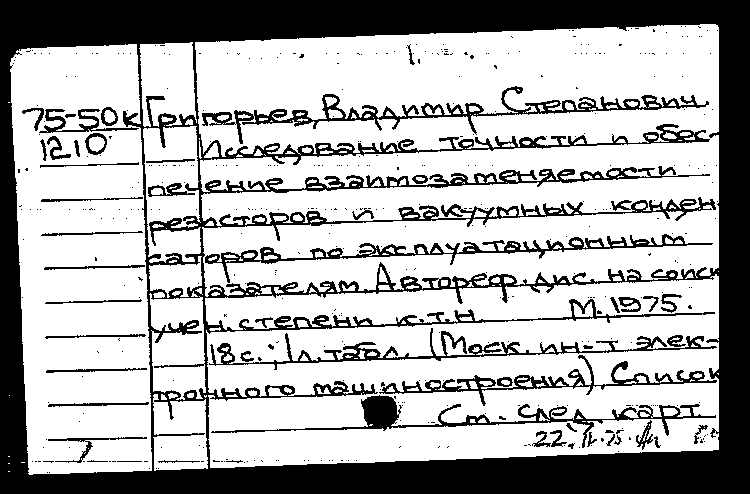 1.
75-50к Григорьев, Владимир Степанович.
1210 Исследование точности и обес-
печение взаимозаменяемости
резисторов и вакуумных конден-
саторов по эксплуатационным
показателям. Автореф. дис. на соиск
учен. степени к.т.н. М., 1975.
18 с.; 1 л. табл. (Моск. ин-т элек-
тронного машиностроения). Список
См. след. карт.